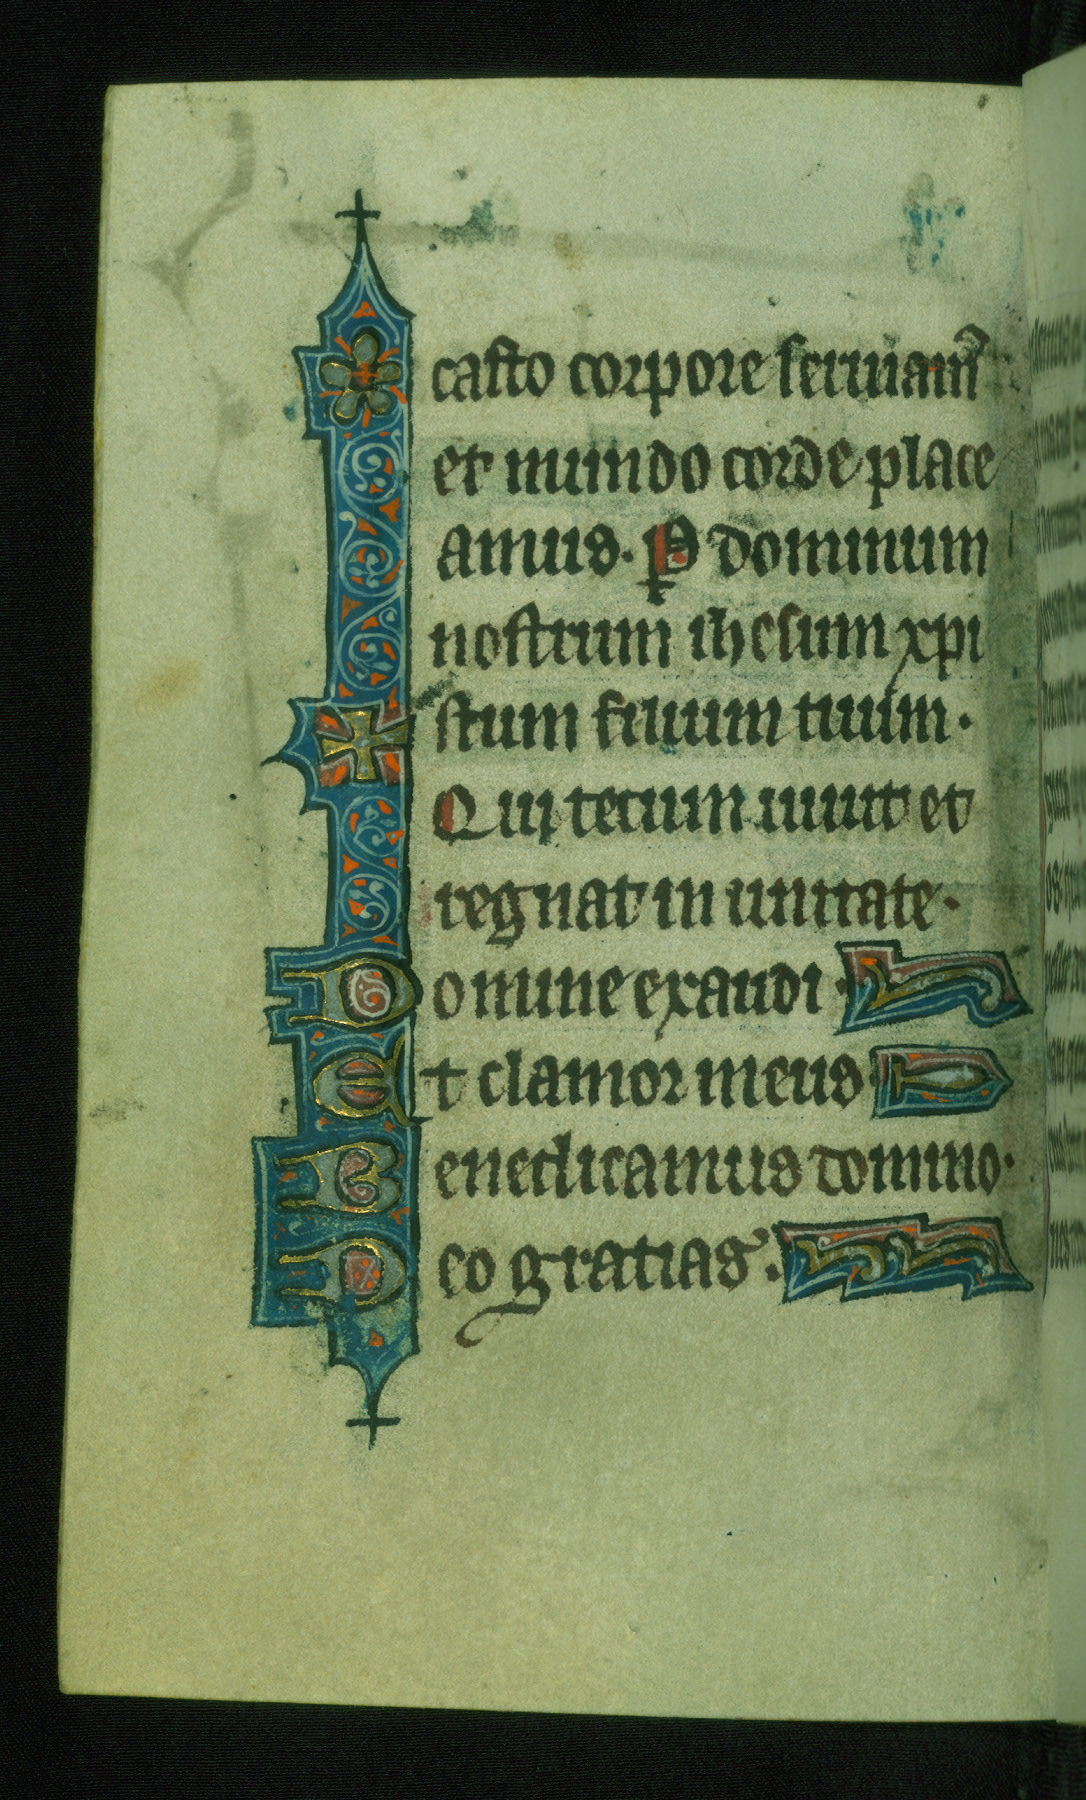 casto corpore seruiam᷒
et mundo corde place
amus. P dominum
nostrum ihesum xpi
stum filium tuum.
Qui tecum uiuit et
regnat in unitate.
Domine exaudi.
Et clamor meus.
Benedicamus domino.
Deo gratias.